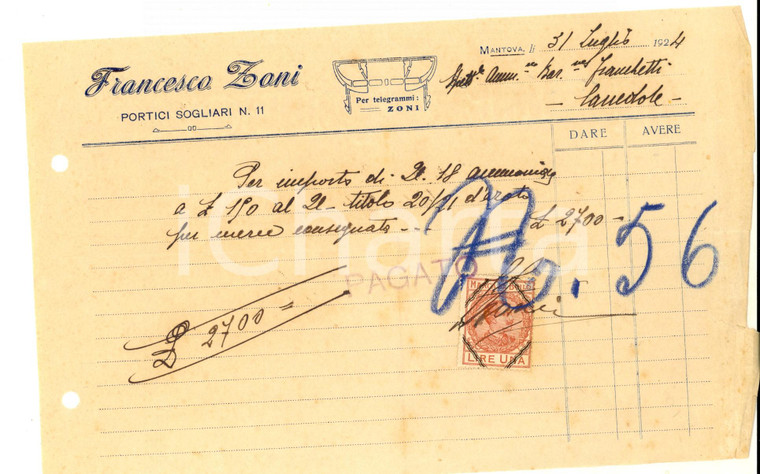 Francesco Zoni
PORTICI SOGLIARI N. 11
Per telegrammi:
ZONI
MANTOVA, li 31 Luglio 1924
Spett.le Amm.ne Bar. Franchetti
- Canedole -
DARE AVERE
Per importo di Ql. 18
a £ 150 al Ql. titolo 20/21 d'azoto
per merce consegnata - £ 2700 -
N. 56
PAGATO
£ 2700 =
LIRE UNA
iCharta